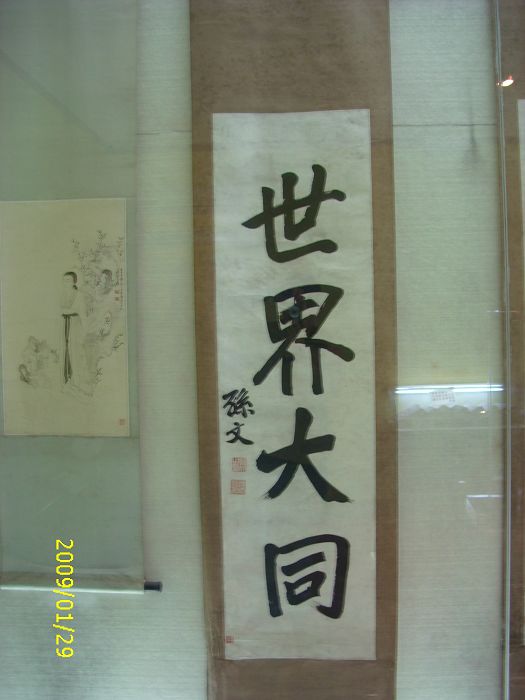 世界大同
孫文
2009/01/29